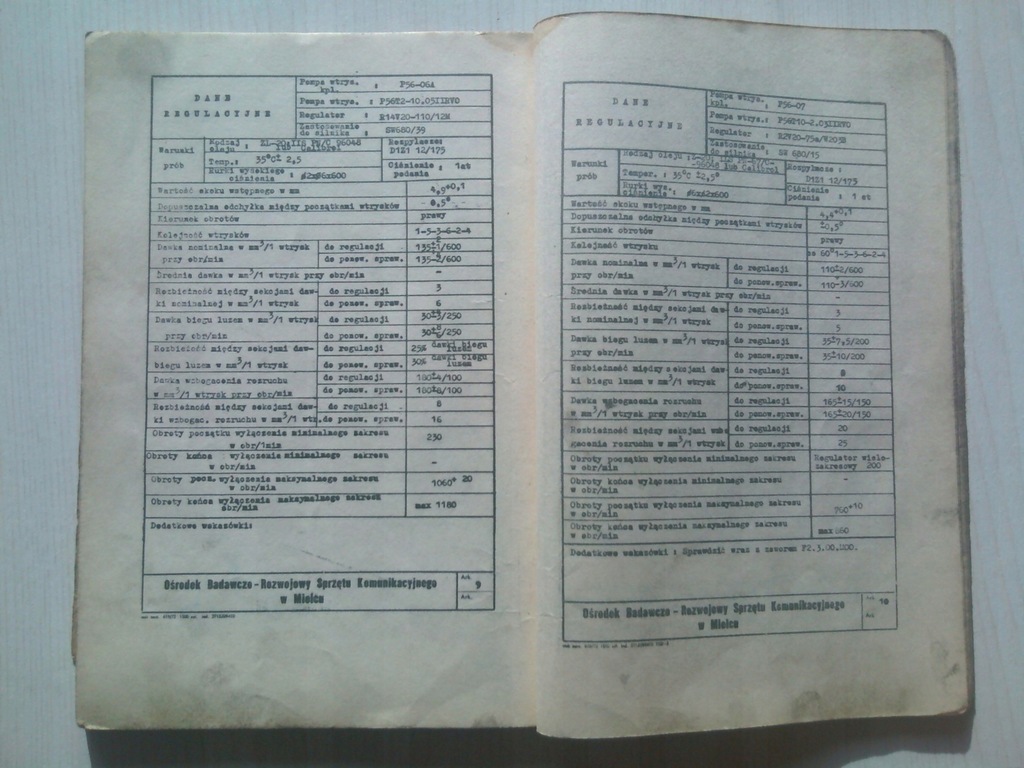 DANE
REGULACYJNE
Pompa wtrys. kpl. : P56-06A
Pompa wtrys. : P56T2-10.03IIRVO
Regulator : R14V20-110/12M
Zastosowanie do silnika : SW680/39
Warunki prób
Rodzaj oleju : lub Calibrol
Rozpylacze: D1Z1 12/175
Temp.: 35°C± 2,5
Rurki wyskiego ciśnienia : ø2xø6x600
Ciśnienie podania : 1at
Wartość skoku wstępnego w mm 4,9+0,1
Dopuszczalna odchyłka między początkami wtrysków 0,5°
Kierunek obrotów prawy
Kolejność wtrysków 1-5-3-6-2-4
Dawka nominalna w mm³/1 wtrysk do regulacji 135±1/600
przy obr/min do ponow. spraw. /600
Średnia dawka w mm³/1 wtrysk przy obr/min -
Rozbieżność między sekcjami daw- do regulacji 3
ki nominalnej w mm³/1 wtrysk do ponow. spraw. 6
Dawka biegu luzem w mm³/1 wtrysk do regulacji 30±3/250
przy obr/min do ponow. spraw. /250
Rozbieżność między sekcjami daw- do regulacji 25% dawki biegu luzem
biegu luzem w mm³/1 wtrysk do ponow. spraw. 30% dawki biegu luzem
Dawka wzbogacenia rozruchu do regulacji 180±4/100
w mm³/1 wtrysk przy obr/min do ponow. spraw. 180±8/100
Rozbieżność między sekcjami daw- do regulacji 8
ki wzbogac. rozruchu w mm³/1 wtr. do ponow. spraw. 16
Obroty początku wyłączenia minimalnego zakresu
w obr/1min 230
Obroty końca wyłączenia minimalnego zakresu
w obr/min -
Obroty pocz. wyłączenia maksymalnego zakresu
w obr/min 1060+ 20
Obroty końca wyłączenia maksymalnego zakresu
obr/min max 1180
Dodatkowe wskazówki:
Ośrodek Badawczo-Rozwojowy Sprzętu Komunikacyjnego
w Mielcu
Ark. 9
Ark.
DANE
REGULACYJNE
Pompa wtrys. kpl. : P56-07
Pompa wtrys.: P56T10-2.03IIRVO
Regulator :
Zastosowanie do silnika : SW 680/15
Warunki prób
Rodzaj oleju : lub Calibrol
Rozpylacze : D1Z1 12/175
Temper. : 35°C ±2,5°
Rurki wys. ciśnienia : ø6xø2x600
Ciśnienie podania : 1 at
Wartość skoku wstępnego w mm 4,4+0,1
Dopuszczalna odchyłka między początkami wtrysków ±0,5°
Kierunek obrotów prawy
Kolejność wtrysku co 60°1-5-3-6-2-4
Dawka nominalna w mm³/1 wtrysk do regulacji 110±2/600
przy obr/min do ponow.spraw. 110-3/600
Średnia dawka w mm³/1 wtrysk przy obr/min -
Rozbieżność między sekcjami daw- do regulacji 3
ki nominalnej w mm³/1 wtrysk do ponow.spraw. 5
Dawka biegu luzem w mm³/1 wtrysk do regulacji 35±7,5/200
przy obr/min do ponow.spraw. 35±10/200
Rozbieżność między sekcjami daw- do regulacji 8
ki biegu luzem w mm³/1 wtrysk do ponow.spraw. 10
Dawka wzbogacenia rozruchu do regulacji 165±15/150
w mm³/1 wtrysk przy obr/min do ponow.spraw. 165±20/150
Rozbieżność między sekcjami wzbo- do regulacji 20
gacenia rozruchu w mm³/1 wtrysk do ponow.spraw. 25
Obroty początku wyłączenia minimalnego zakresu
w obr/min Regulator wielo-
zakresowy 200
Obroty końca wyłączenia minimalnego zakresu
w obr/min -
Obroty początku wyłączenia maksymalnego zakresu
w obr/min +10
Obroty końca wyłączenia maksymalnego zakresu
w obr/min max
Dodatkowe wskazówki : Sprawdzić wraz z zaworem
Ośrodek Badawczo-Rozwojowy Sprzętu Komunikacyjnego
w Mielcu
Ark. 10
Ark.